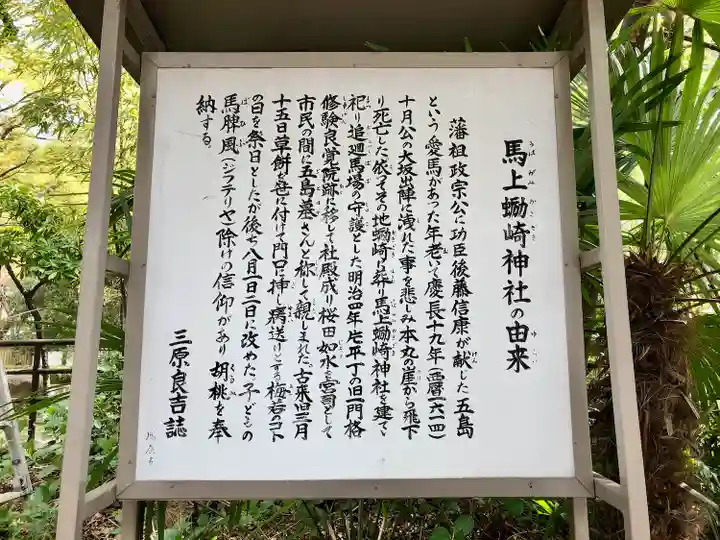 馬上蠣崎神社の由来
藩祖政宗公に功臣後藤信康が献じた五島
という愛馬があった年老いて慶長十九年(西暦一六一四)
十月公の大坂出陣に洩れた事を悲しみ本丸の崖から飛下
り死亡した、依てその地蠣崎に葬り馬上蠣崎神社を建てゝ
祀り追廻馬場の守護とした明治四年片平丁の旧一門格
修験良覚院跡に移して社殿成り桜田如水を宮司として
市民の間に五島墓さんと称して親しまれた、古来旧三月
十五日草餅を笹に付けて門口に挿し痡送りとする梅若のコト
の日を祭日としたが後ち八月一日二日に改めたっ子どもの
馬脾風(ジフテリヤ)除けの信仰があり 胡桃を奉
納する。
三原良吉誌